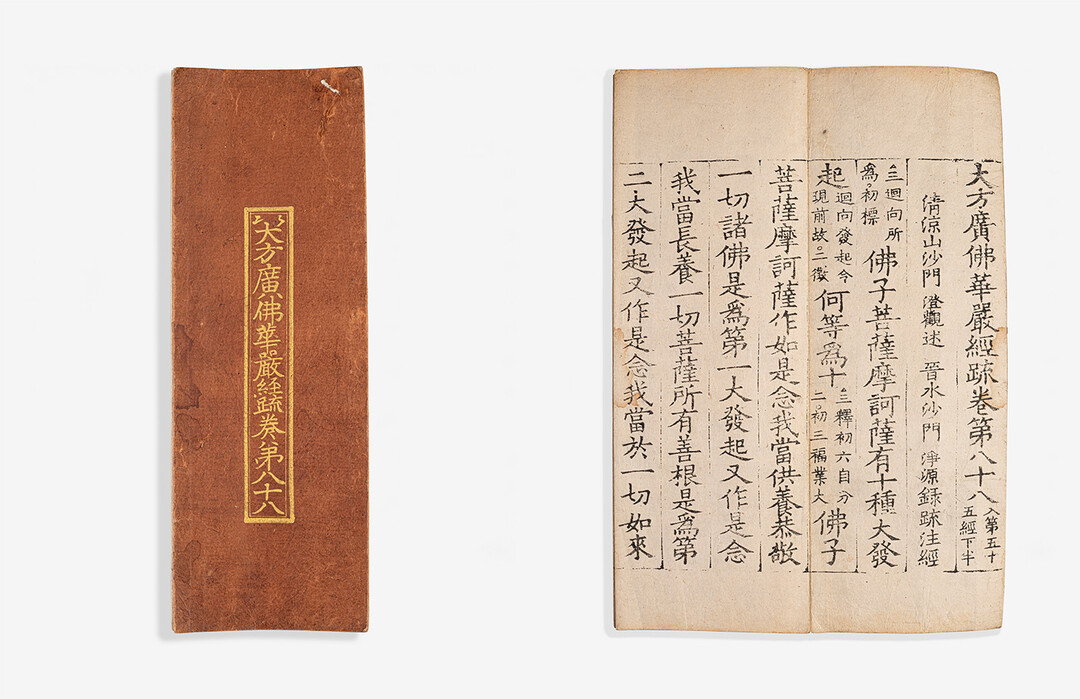 大方廣佛華嚴經疏卷第八十八
大方廣佛華嚴經疏卷第八十八 入第五十五經下半
清涼山沙門 澄觀述 晉水沙門 淨源録疏注經
三迴向所爲初標 佛子菩薩摩訶薩有十種大發
起 迴向發起今現前故二徵 何等爲十 三釋初六自分二初三福業大 佛子
菩薩摩訶薩作如是念我當供養恭敬
一切諸佛是爲第一大發起又作是念
我當長養一切菩薩所有善根是爲第
二大發起又作是念我當於一切如來